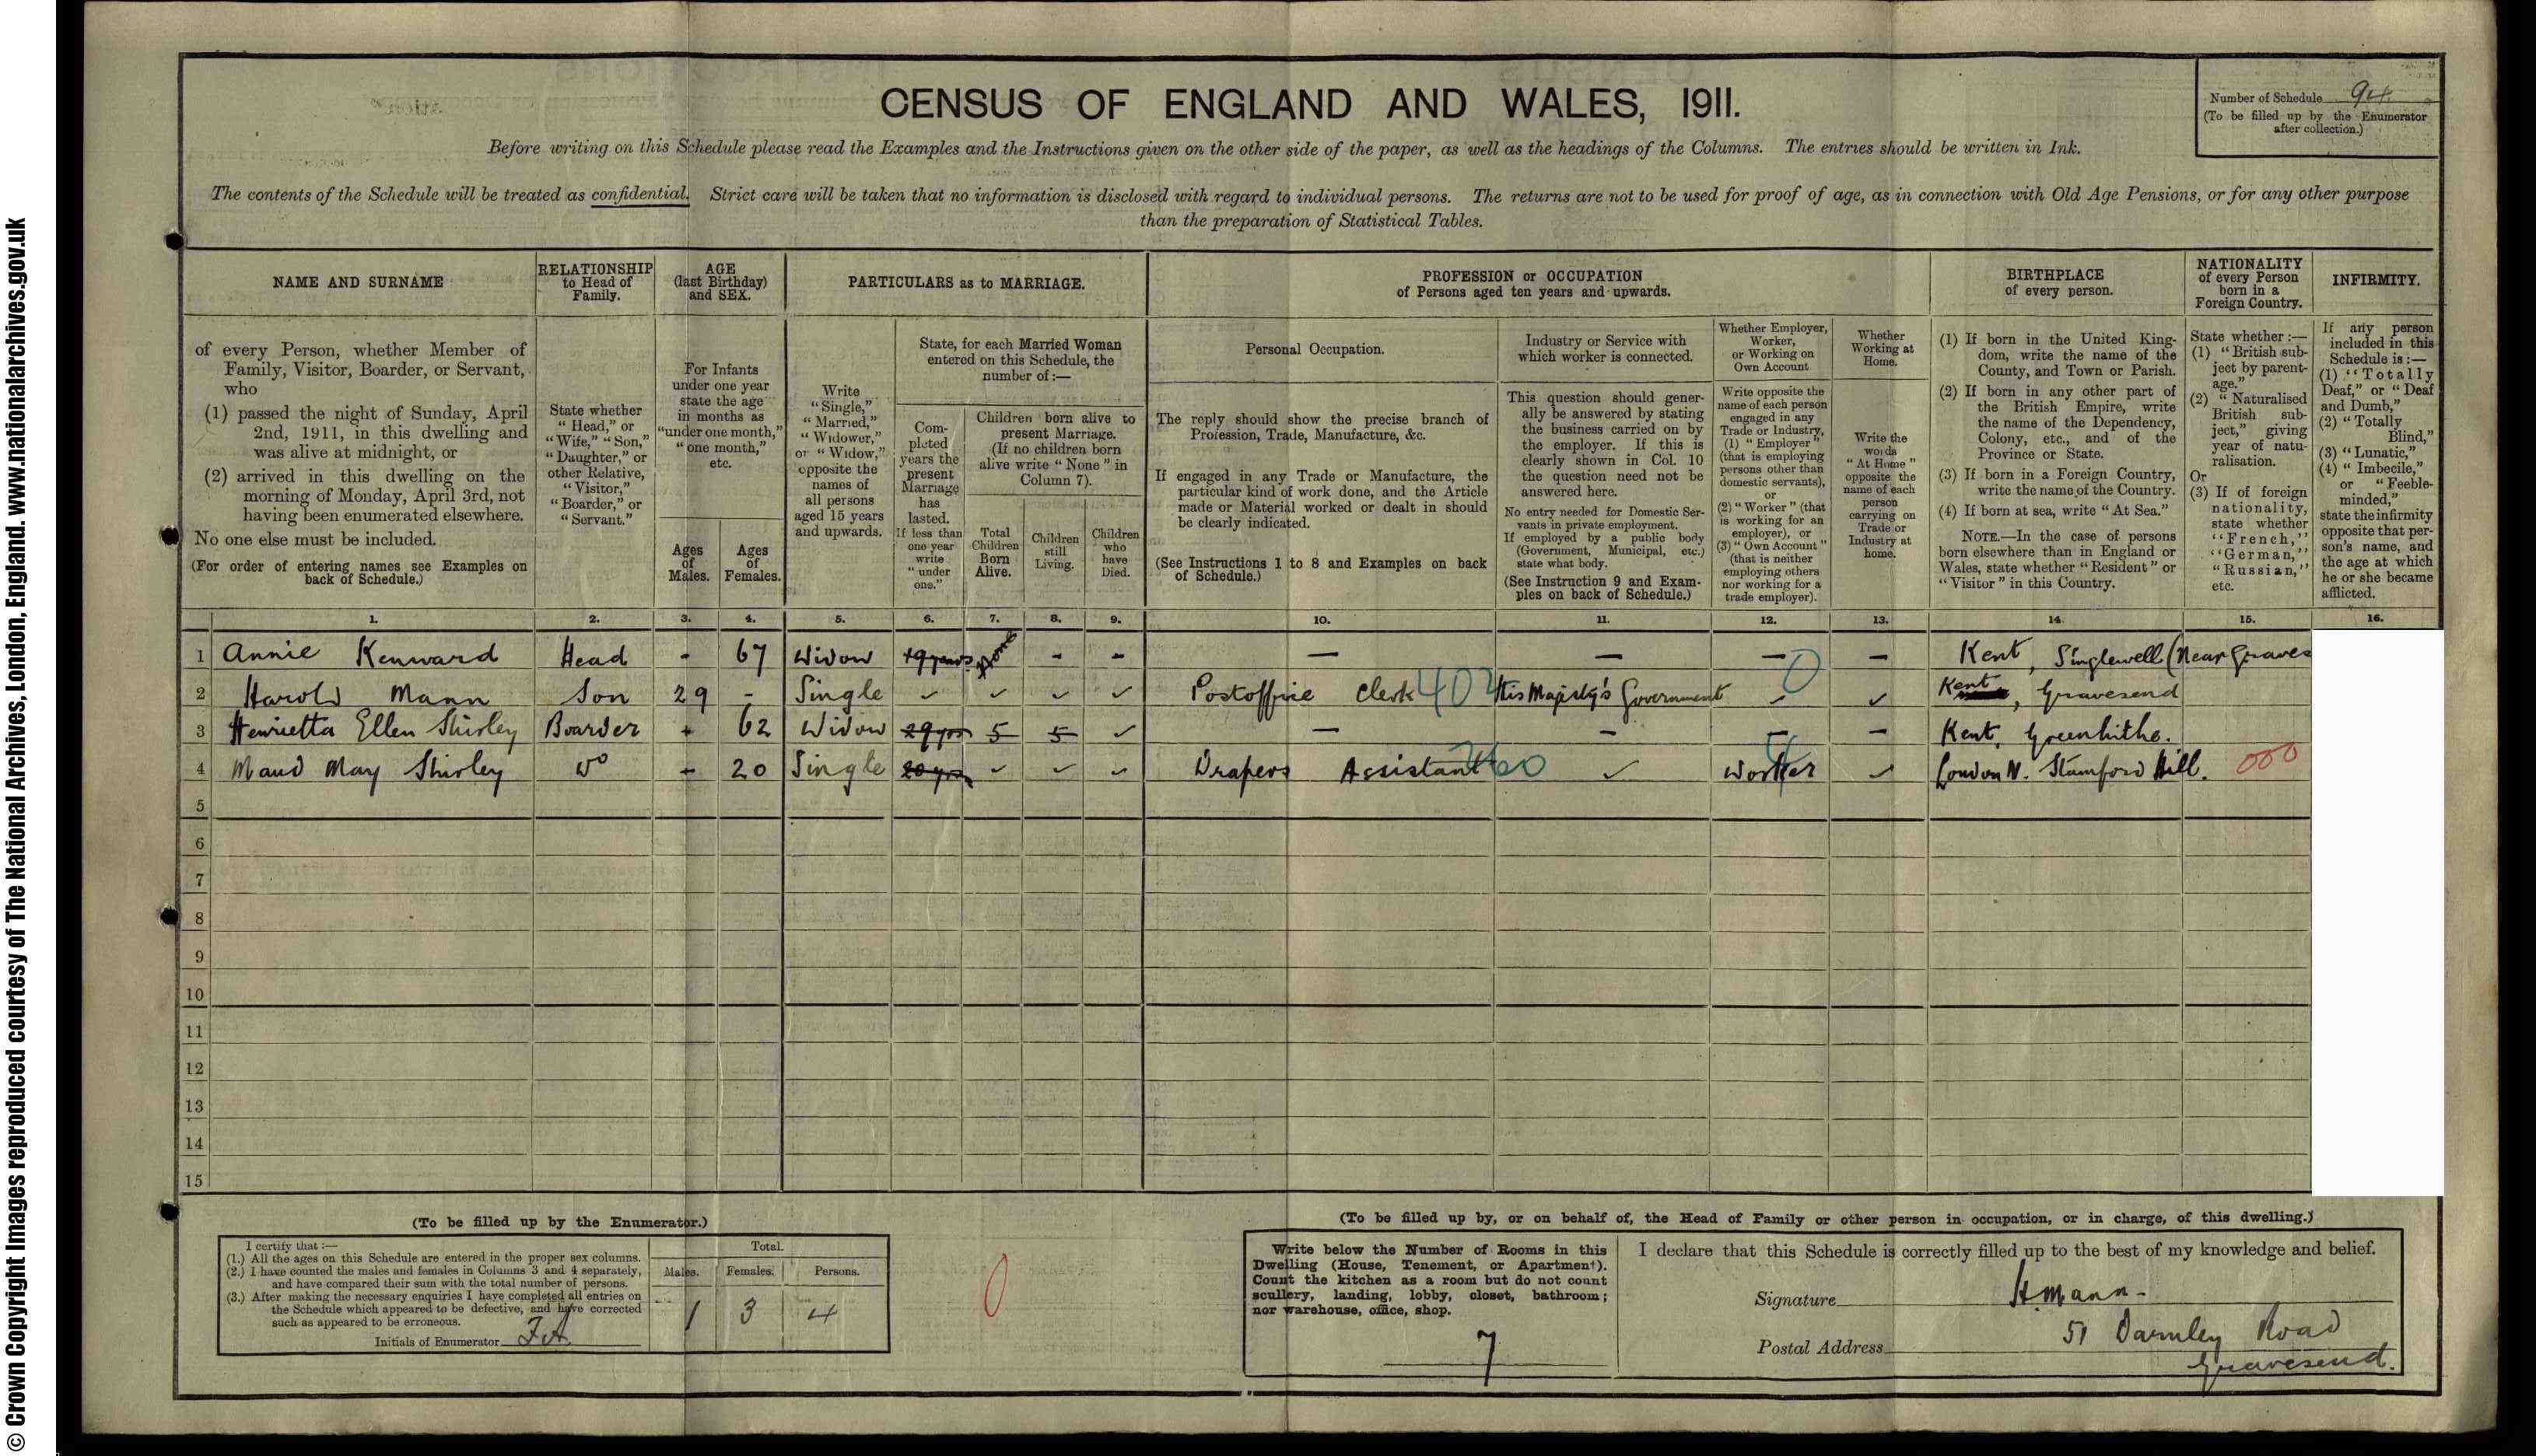 © Crown Copyright Images reproduced courtesy of The National Archives, London, England. www.nationalarchives.gov.uk
CENSUS OF ENGLAND AND WALES, 1911.
Number of Schedule 94
(To be filled up by the Enumerator
after collection.)
Before writing on this Schedule please read the Examples and the Instructions given on the other side of the paper, as well as the headings of the Columns. The entries should be written in Ink.
The contents of the Schedule will be treated as confidential. Strict care will be taken that no information is disclosed with regard to individual persons. The returns are not to be used for proof of age, as in connection with Old Age Pensions, or for any other purpose
than the preparation of Statistical Tables.
NAME AND SURNAME
of every Person, whether Member of
Family, Visitor, Boarder, or Servant,
who
(1) passed the night of Sunday, April
2nd, 1911, in this dwelling and
was alive at midnight, or
(2) arrived in this dwelling on the
morning of Monday, April 3rd, not
having been enumerated elsewhere.
No one else must be included.
(For order of entering names see Examples on
back of Schedule.)
RELATIONSHIP
to Head of
Family.
State whether
"Head," or
"Wife," "Son,"
"Daughter," or
other Relative,
"Visitor,"
"Boarder," or
"Servant."
AGE
(last Birthday)
and SEX.
For Infants
under one year
state the age
in months as
"under one month,"
"one month,"
etc.
Ages
of
Males.
Ages
of
Females.
PARTICULARS as to MARRIAGE.
Write
"Single,"
"Married,"
"Widower,"
or "Widow,"
opposite the
names of
all persons
aged 15 years
and upwards.
State, for each Married Woman
entered on this Schedule, the
number of:—
Com-
pleted
years the
present
Marriage
has
lasted.
If less than
one year
write
"under
one."
Children born alive to
present Marriage.
(If no children born
alive write "None" in
Column 7).
Total
Children
Born
Alive.
Children
still
Living.
Children
who
have
Died.
PROFESSION or OCCUPATION
of Persons aged ten years and upwards.
Personal Occupation.
The reply should show the precise branch of
Profession, Trade, Manufacture, &c.
If engaged in any Trade or Manufacture, the
particular kind of work done, and the Article
made or Material worked or dealt in should
be clearly indicated.
(See Instructions 1 to 8 and Examples on back
of Schedule.)
Industry or Service with
which worker is connected.
This question should gener-
ally be answered by stating
the business carried on by
the employer. If this is
clearly shown in Col. 10
the question need not be
answered here.
No entry needed for Domestic Ser-
vants in private employment.
If employed by a public body
(Government, Municipal, etc.)
state what body.
(See Instruction 9 and Exam-
ples on back of Schedule.)
Whether Employer,
Worker,
or Working on
Own Account
Write opposite the
name of each person
engaged in any
Trade or Industry,
(1) "Employer"
(that is employing
persons other than
domestic servants),
or
(2) "Worker" (that
is working for an
employer), or
(3) "Own Account"
(that is neither
employing others
nor working for a
trade employer).
Whether
Working at
Home.
Write the
words
"At Home"
opposite the
name of each
person
carrying on
Trade or
Industry at
home.
BIRTHPLACE
of every person.
(1) If born in the United King-
dom, write the name of the
County, and Town or Parish.
(2) If born in any other part of
the British Empire, write
the name of the Dependency,
Colony, etc., and of the
Province or State.
(3) If born in a Foreign Country,
write the name of the Country.
(4) If born at sea, write "At Sea."
NOTE.—In the case of persons
born elsewhere than in England or
Wales, state whether "Resident" or
"Visitor" in this Country.
NATIONALITY
of every Person
born in a
Foreign Country.
State whether:—
(1) "British sub-
ject by parent-
age."
(2) "Naturalised
British sub-
ject," giving
year of natu-
ralisation.
Or
(3) If of foreign
nationality,
state whether
"French,"
"German,"
"Russian,"
etc.
INFIRMITY.
If any person
included in this
Schedule is:—
(1) "Totally
Deaf," or "Deaf
and Dumb,"
(2) "Totally
Blind,"
(3) "Lunatic,"
(4) "Imbecile,"
or "Feeble-
minded,"
state the infirmity
opposite that per-
son's name, and
the age at which
he or she became
afflicted.
1. 2. 3. 4. 5. 6. 7. 8. 9. 10. 11. 12. 13. 14. 15. 16.
1 Annie Kenward Head - 67 Widow 19 years None - - — — — — Kent, Singlewell (Near Graves
2 Harold Mann Son 29 - Single ✓ ✓ ✓ ✓ Postoffice Clerk His Majesty's Government 0 ✓ ✓ Kent, Gravesend
3 Henrietta Ellen Shirley Boarder - 62 Widow 29 yrs 5 5 ✓ — — — — Kent, Greenhithe.
4 Maud May Shirley Do - 20 Single 20 yrs ✓ ✓ ✓ Drapers Assistant ✓ Worker ✓ London N. Stamford Hill. 000
5
6
7
8
9
10
11
12
13
14
15
(To be filled up by the Enumerator.)
I certify that:—
(1.) All the ages on this Schedule are entered in the proper sex columns.
(2.) I have counted the males and females in Columns 3 and 4 separately,
and have compared their sum with the total number of persons.
(3.) After making the necessary enquiries I have completed all entries on
the Schedule which appeared to be defective, and have corrected
such as appeared to be erroneous.
Initials of Enumerator FA
Total.
Males. Females. Persons.
1 3 4
0
(To be filled up by, or on behalf of, the Head of Family or other person in occupation, or in charge, of this dwelling.)
Write below the Number of Rooms in this
Dwelling (House, Tenement, or Apartment).
Count the kitchen as a room but do not count
scullery, landing, lobby, closet, bathroom;
nor warehouse, office, shop.
7
I declare that this Schedule is correctly filled up to the best of my knowledge and belief.
Signature H Mann
Postal Address 51 Darnley Road
Gravesend.